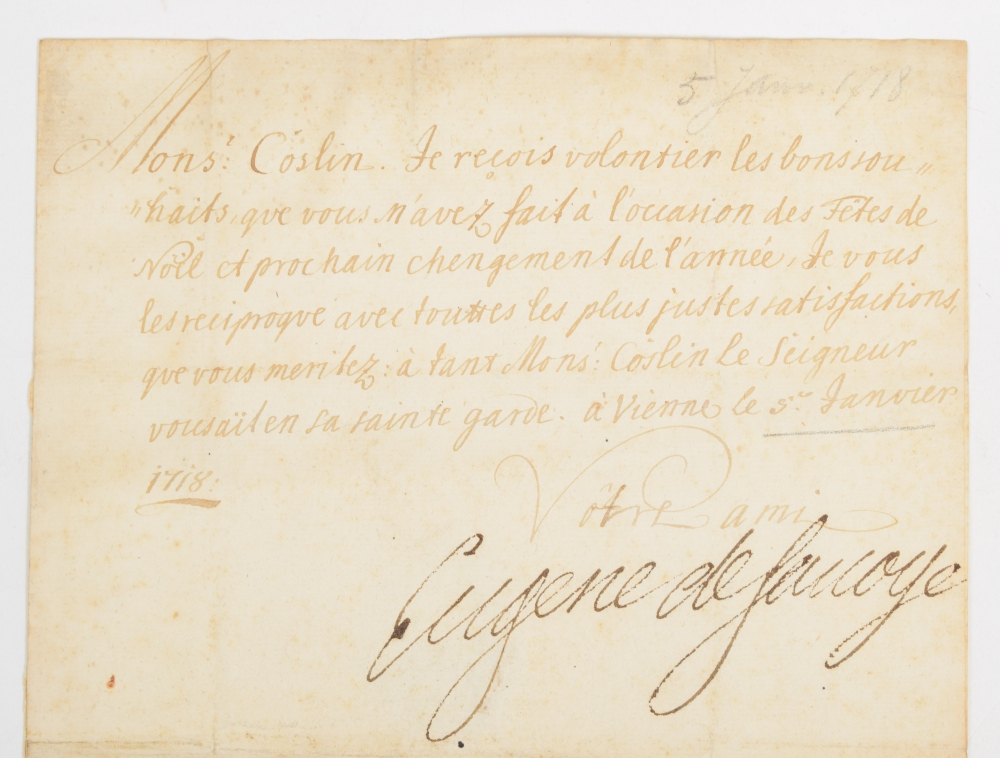 5 Janv. 1718
Mons:r Cöslin. Je reçois volontier les bons sou„
„haits, que vous m'avez fait à l'occasion des Fêtes de
Noël et prochain chengement de l'année, Je vous
les reciproque avec touttes les plus justes satisfactions,
que vous meritez: à tant Mons:r Cöslin le Seigneur
vous aït en sa sainte garde. à Vienne le 5.me Janvier
1718:
Vôtre ami
Eugene de Sauoye